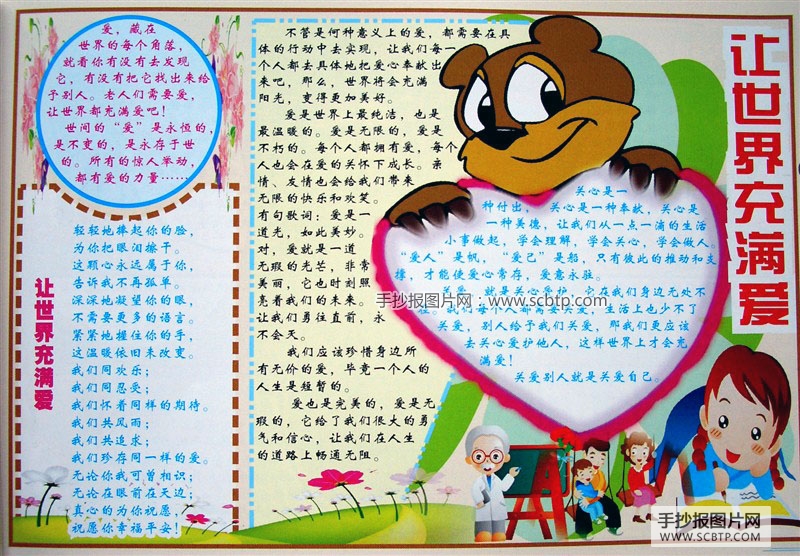 爱，藏在
世界的每个角落，
就看你有没有去发现
它，有没有把它找出来给
予别人。老人们需要爱，
让世界都充满爱吧！
世间的“爱”是永恒的，
是不变的，是永存于世
的。所有的惊人举动，
都有爱的力量……
让世界充满爱
轻轻地捧起你的脸，
为你把眼泪擦干。
这颗心永远属于你，
告诉我不再孤单。
深深地凝望你的眼，
不需要更多的语言。
紧紧地握住你的手，
这温暖依旧未改变。
我们同欢乐；
我们同忍受；
我们怀着同样的期待。
我们共风雨；
我们共追求；
我们珍存同一样的爱。
无论你我可曾相识；
无论在眼前在天边；
真心的为你祝愿，
祝愿你幸福平安！
不管是何种意义上的爱，都需要在具
体的行动中去实现，让我们每一
个人都去具体地把爱心奉献出
来吧，那么，世界将会充满
阳光，变得更加美好。
爱是世界上最纯洁，也是
最温暖的。爱是无限的，爱是
不朽的。每个人都拥有爱，每个
人也会在爱的关怀下成长。亲
情、友情也会给我们带来
无限的快乐和欢笑。
有句歌词：爱是一
道光，如此美妙。
对，爱就是一道
无瑕的光芒，非常
美丽，它也时刻照
亮着我们的未来。
让我们勇往直前，永
不会灭。
我们应该珍惜身边所
有无价的爱，毕竟一个人的
人生是短暂的。
爱也是完美的，爱是无
瑕的，它给了我们很大的勇
气和信心，让我们在人生
的道路上畅通无阻。
关心是一
种付出，关心是一种奉献，关心是
一种美德，让我们从一点一滴的生活
小事做起，学会理解，学会关心，学会做人。
“爱人”是帆，“爱己”是船，只有彼此的推动和支
撑，才能使爱心常存，爱意永驻。
关爱，就是关心爱护，它在我们身边无处不
在。我们每个人都需要关爱，生活上也少不了
关爱，别人给予我们关爱，那我们更应该
去关心爱护他人，这样世界上才会充
满爱！
关爱别人就是关爱自己。
让世界充满爱
手抄报图片网：www.scbtp.com
手抄报图片网
SCBTP.COM